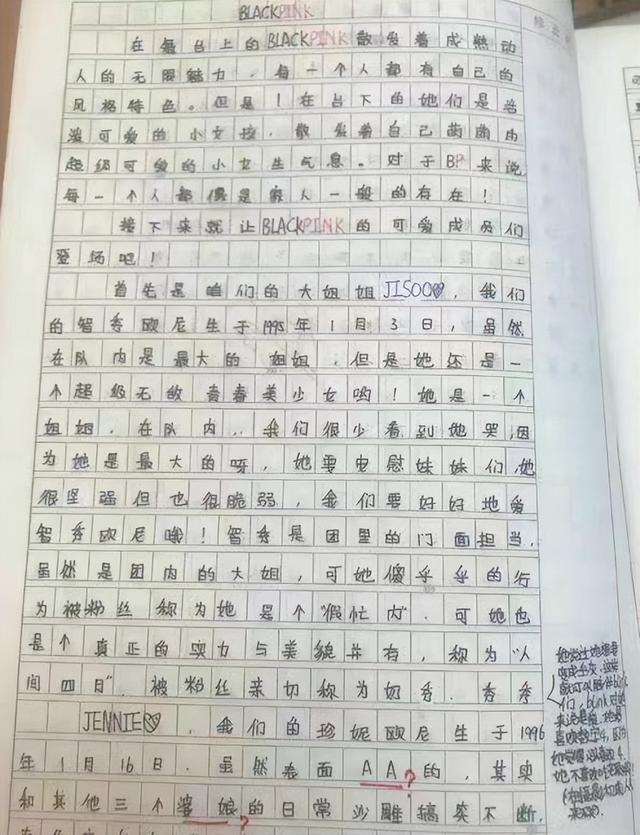 BLACKPINK
在舞台上的BLACKPINK散发着成熟动
人的无限魅力,每一个人都有自己的
风格特色。但是!在台下的她们是活
泼可爱的小女孩,散发着自己萌萌的
超级可爱的小女生气息。对于BP来说
每一个人都像是家人一般的存在!
接下来就让BLACKPINK的可爱成员们
登场吧!
首先是咱们的大姐姐JISOO,我们
的智秀欧尼生于1995年1月3日,虽然
在队内是最大的姐姐,但是她还是一
个超级无敌青春美少女哟!她是一个
姐姐,在队内,我们很少看到她哭,因
为她是最大的呀,她要安慰妹妹们,她
很坚强但也很脆弱,我们要好好地爱
智秀欧尼哦!智秀是团里的门面担当,
虽然是团内的大姐,可她傻乎乎的行
为被粉丝称为她是个"假忙内",可她也
是个真正的实力与美貌并存,称为"人
间四日",被粉丝亲切称为奶秀,秀秀
JENNIE,我们的珍妮欧尼生于1996
年1月16日,虽然表面AA?的,其实
和其他三个婆娘的日常沙雕搞笑不断,
?